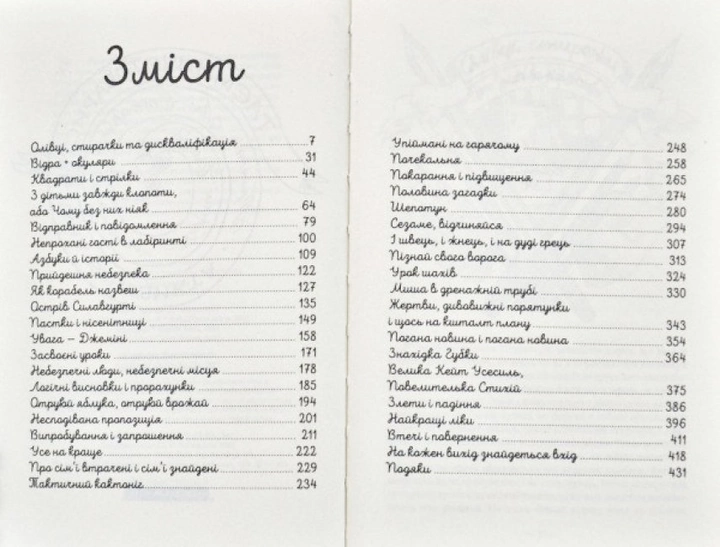 Зміст
Олівці, стирачки та дискваліфікація 7
Відра + окуляри 31
Квадрати і стрілки 44
З дітьми завжди клопоти,
або Чому без них ніяк 64
Відправник і повідомлення 79
Непрохані гості в лабіринті 100
Азбуки й історії 109
Прийдешня небезпека 122
Як корабель назвеш 127
Острів Силавгурті 135
Пастки і нісенітниці 149
Увага — Джеміні 158
Засвоєні уроки 171
Небезпечні люди, небезпечні місця 178
Логічні висновки і прорахунки 185
Отруйні яблука, отруйні врожай 194
Несподівана пропозиція 201
Випробування і запрошення 211
Усе на краще 222
Про сім'ї втрачені і сім'ї знайдені 229
Тактичний кактоніг 234
Упіймані на гарячому 248
Почекальня 258
Покарання і підвищення 265
Половина загадки 274
Шепотун 280
Сезаме, відчиняйся 294
І швець, і жнець, і на дуді грець 307
Пізнай свого ворога 313
Урок шахів 324
Миша в дренажній трубі 330
Жертви, дивовижні порятунки
і щось на кшталт плану 343
Погана новина і погана новина 354
Знахідка Губки 364
Велика Кейт Усесиль,
Повелителька Стихій 375
Злети і падіння 386
Найкращі ліки 396
Втечі і повернення 411
На кожен вихід знайдеться вхід 418
Подяки 431